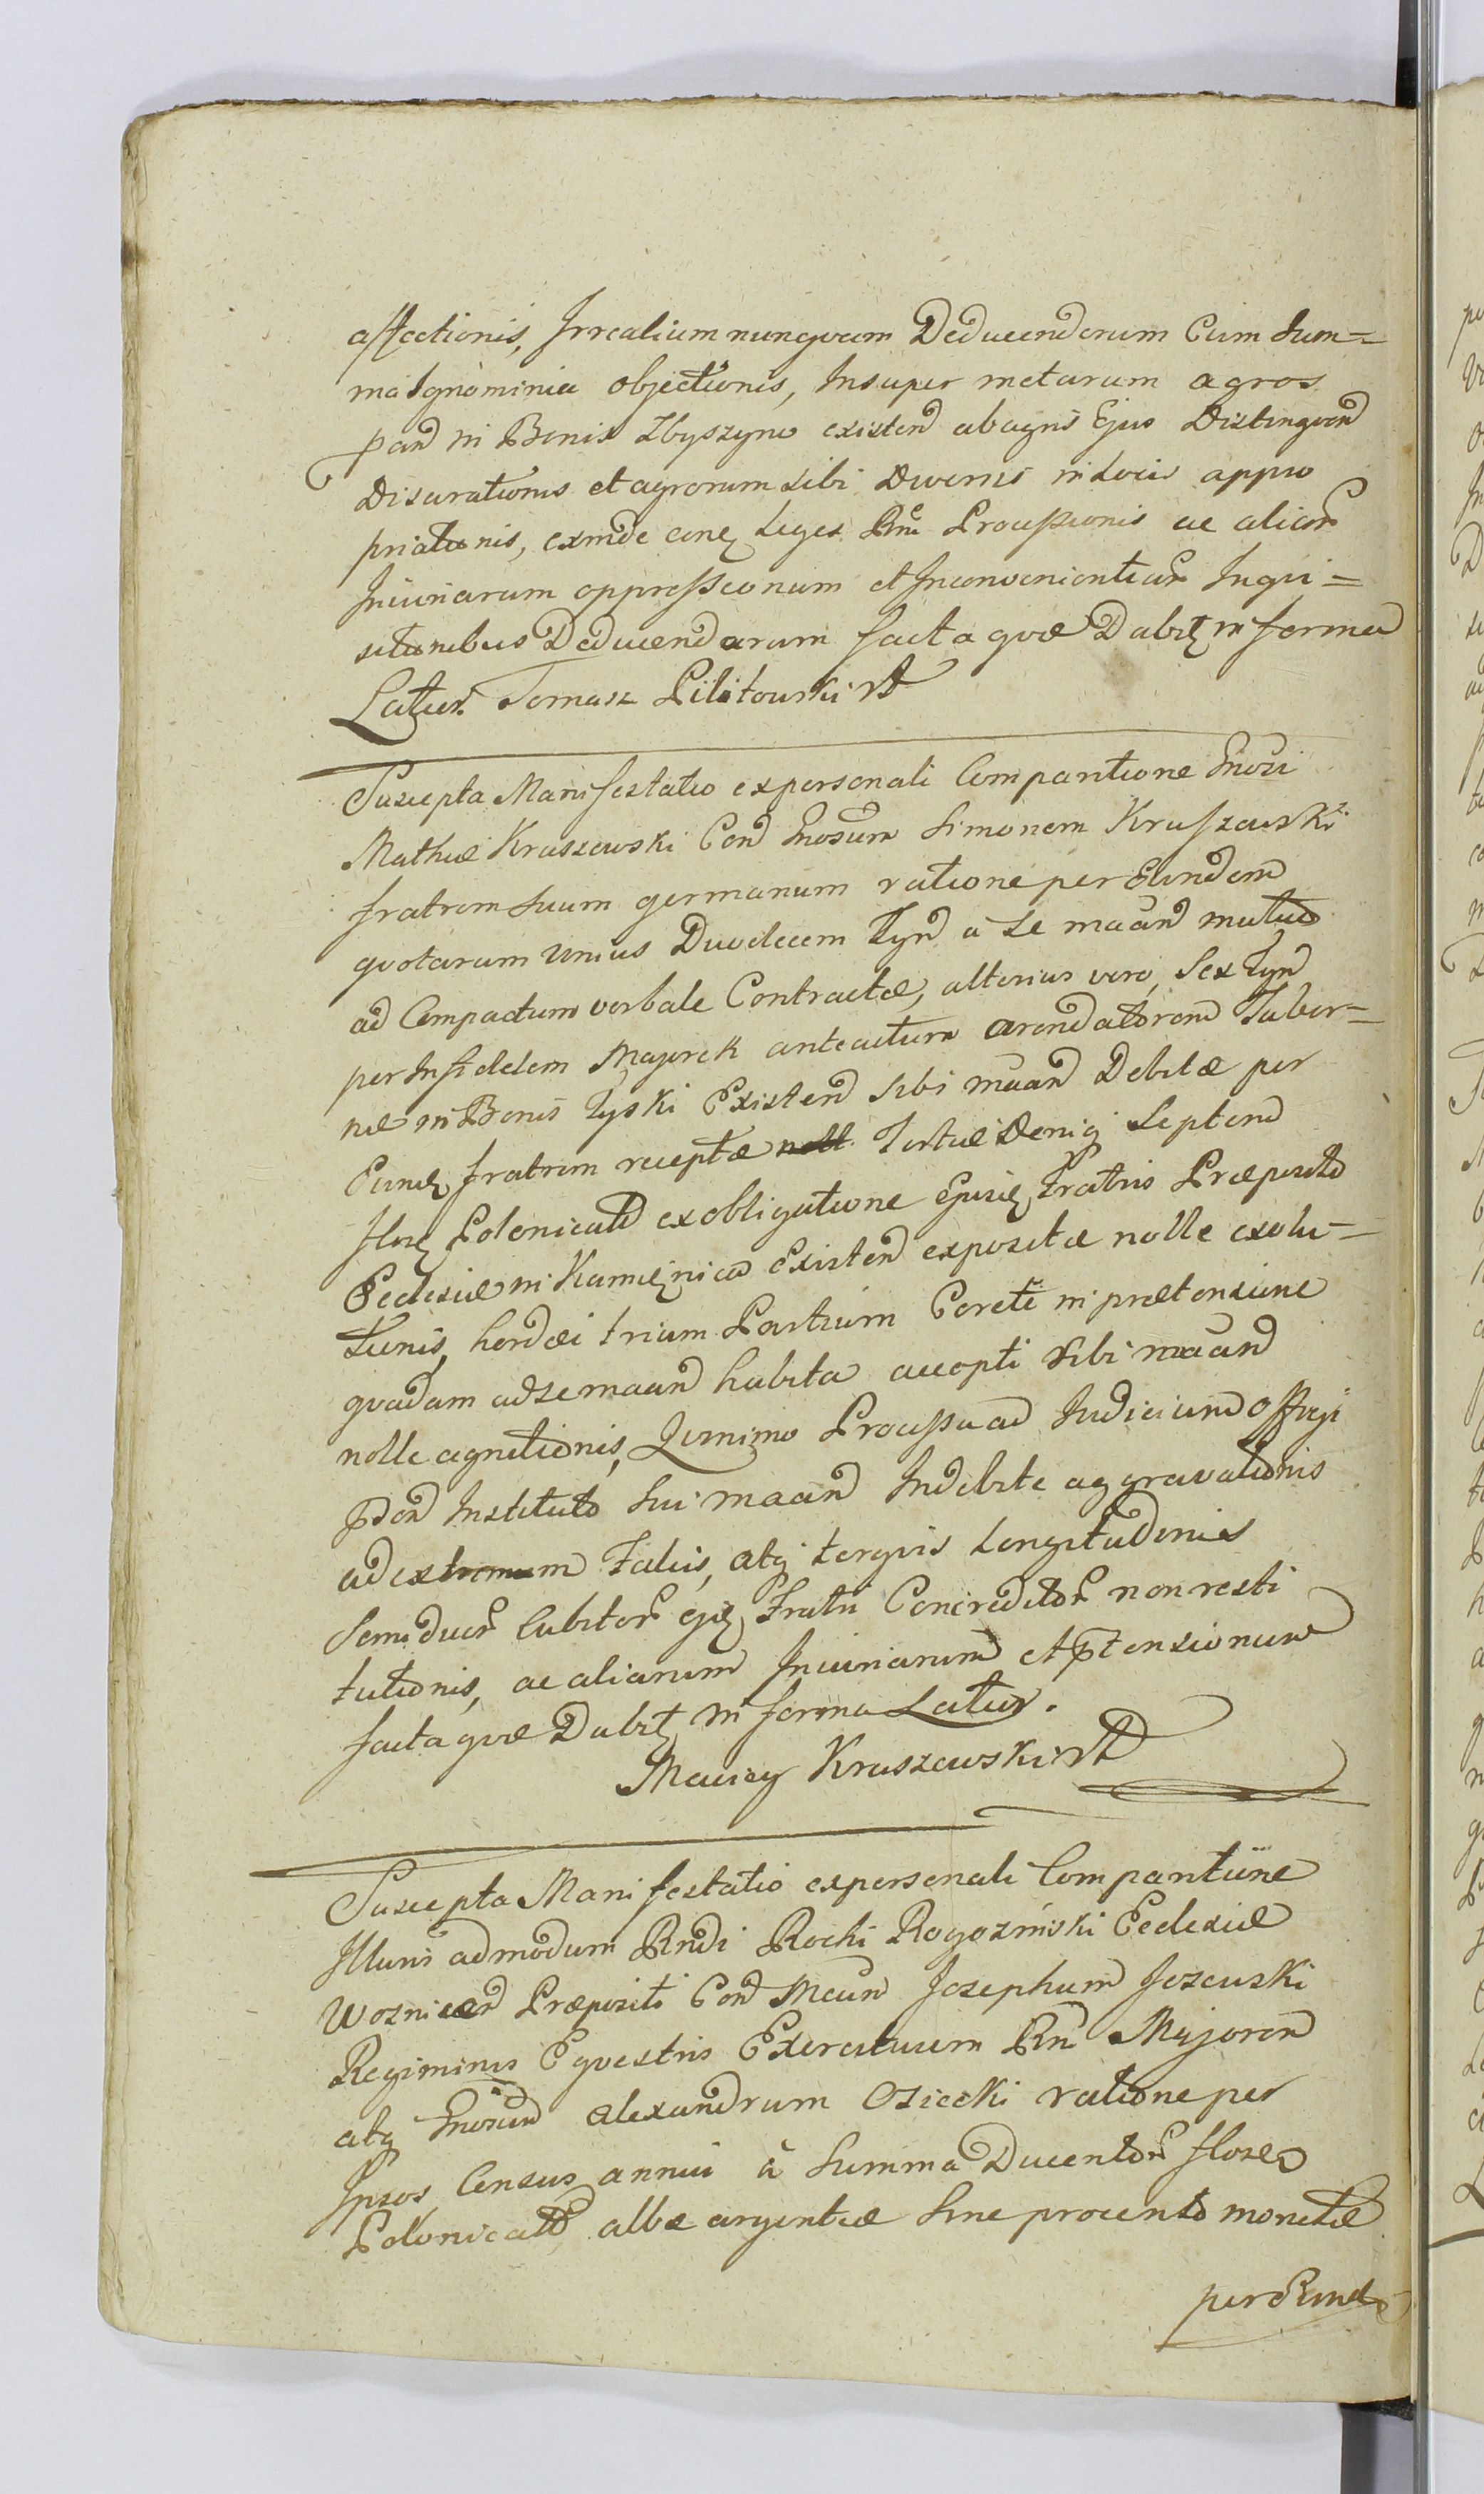 affectionis, Irrealium nunqvam Deducendorum Cum Sum=
ma Ignominia objectionis, Insuper metarum agros
pand in Bonis Zbyszyno existend ab agris Ejus Distingvend
Disarationis et agrorum sibi Diversis in Locis appro
priationis, exinde conq Leges Rni Processionis ac aliar
Iniuriarum oppressionum et Inconvenientiar Inqvi=
sitionibus Deducendarum facta qvæ Dabit in forma
Latius. Tomasz Pilitowski
Suscepta Manifestatio expersonali Comparitione Gnosi
Mathiæ Kraszewski Con Gnosum Simonem Kraszewski
fratrem Suum germanum ratione per Eundem
qvotarum unius Duodecem Tyn a Se maan mutuo
ad Compactum verbale Contractæ, alterius vero, Sex Tyn
per Infidelem Majorek anteactum arendatorem Taber=
næ in Bonis Łyski Existen sibi maan Debitæ per
Eunq fratrem receptæ Tertiæ Deniq Septem
flor Polonicali ex obligatione Ejusq fratris Præposito
Ecclesiæ in Kamięnica Existen expositæ nolle exolu=
tionis, hordei trium Partium Coreti in prætensione
qvadam ad se maan habita accepti sibi maan
nolle agnitionis, Qvinimo Processu ad Iudicium Offcji
Pden Instituto Sui maan Indebite aggravationis
ad extremum Falcis, atq tergvis Longitudinis
Semiduor Cubitor ejq Fratri Concreditor non resti
tutionis, ac aliarum Iniuriarum et Ptensionum
facta qvæ Dabit in forma Latius.
Maciey Kraszewski
Suscepta Manifestatio expersonali Comparitione
Illuris admodum Rndi Rochi Rogoziński Ecclesiæ
Woznicen Præpositi Con Mcum Josephum Jezewski
Regiminis Eqvestris Exercituum Rni Majorem
atq Gnosum Alexandrum Osiecki ratione per
Ipsos Census annui à Summa Ducentor flor
Polonicali albæ argenteæ Sine procento monetæ
per Eund